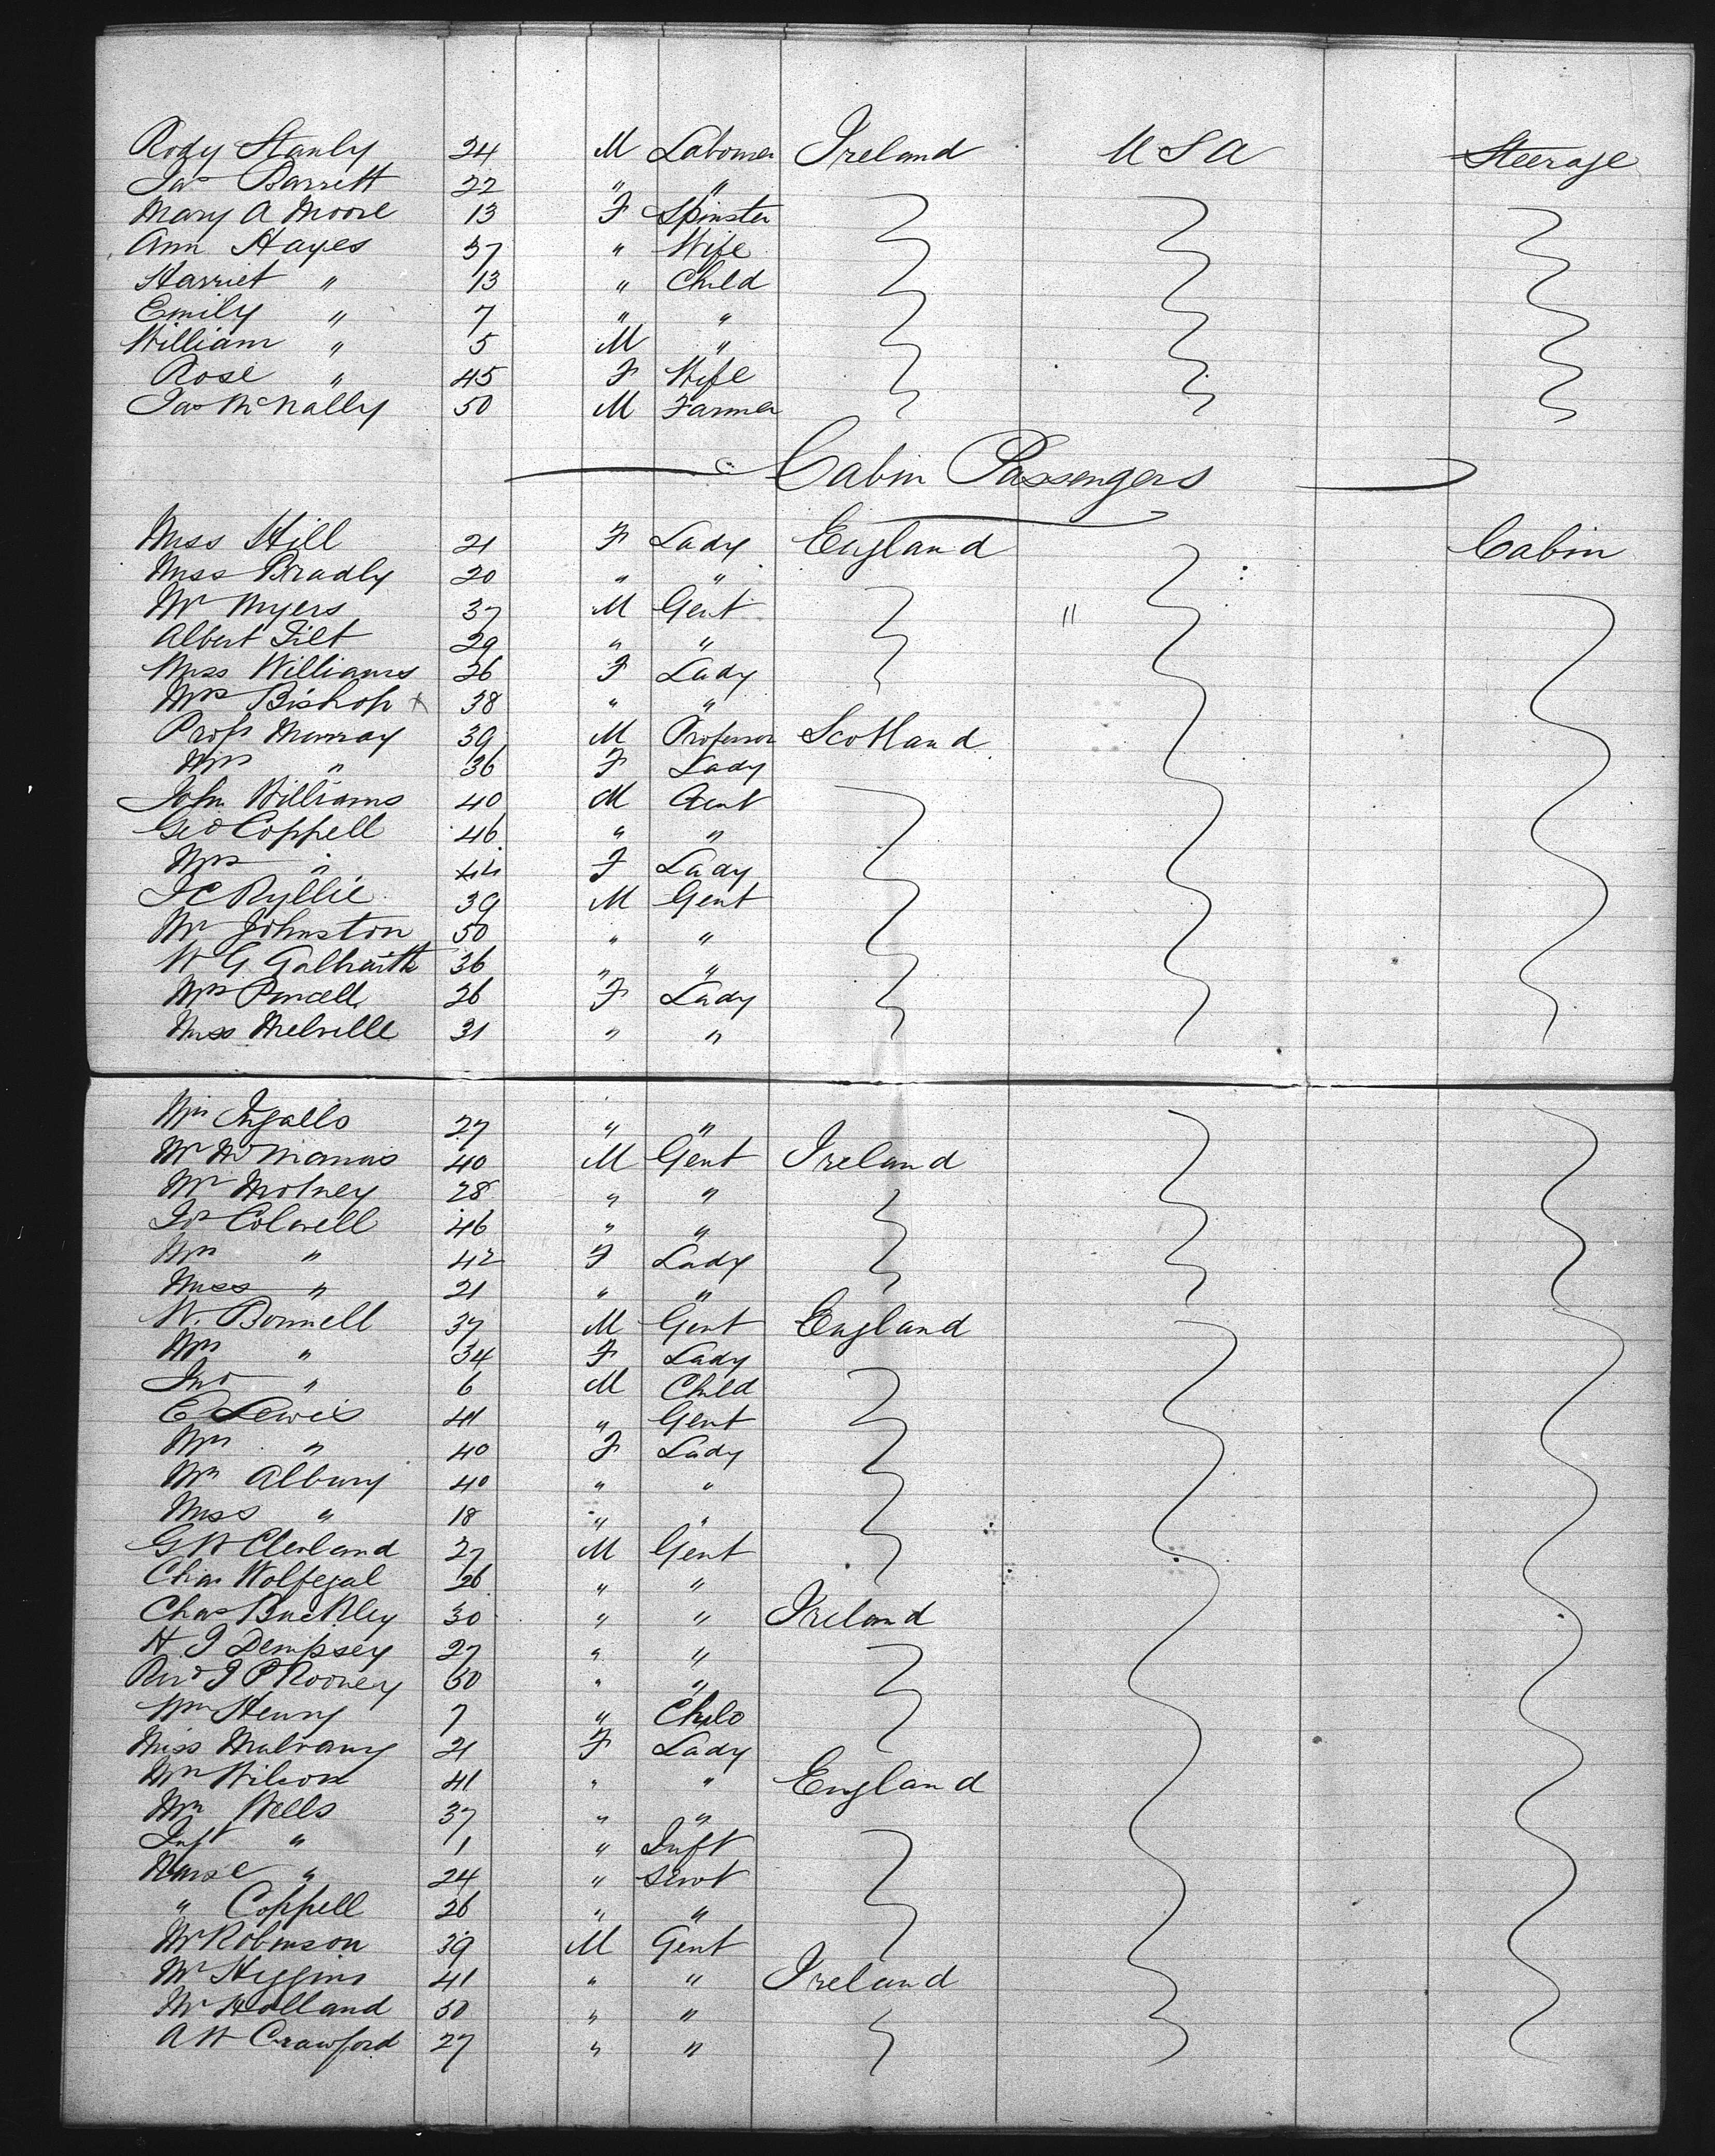 Rody Stanly 24 M Labourer Ireland U S A Steerage
Jas Barrett 22 " "
Mary A Moore 13 F Spinster
Ann Hayes 37 " Wife
Harriet " 13 " Child
Emily " 7 " "
William " 5 M "
Rose " 45 F Wife
Jas McNally 50 M Farmer
Cabin Passengers
Miss Hill 21 F Lady England Cabin
Miss Bradly 20 " "
Mr Myers 37 M Gent "
Albert Tilt 29 " "
Miss Williams 26 F Lady
Mrs Bishop x 38 " "
Profr Murray 39 M Professor Scotland
Mrs " 36 F Lady
John Williams 40 M Gent
Geo Coppell 46 " "
Mrs " 44 F Lady
J C Ryllie 39 M Gent
Mr Johnston 50 " "
W G Galbraith 36 " "
Mrs Purcell 26 F Lady
Miss Melville 31 " "
Mrs Ingalls 27 " "
Mr McManus 40 M Gent Ireland
Mr 28 " "
Jos Colwell 46 " "
Mrs " 42 F Lady
Miss " 21 " "
W. Bonnell 37 M Gent England
Mrs " 34 F Lady
Jno " 6 M Child
E Lewis 41 " Gent
Mrs " 40 F Lady
Mrs Albury 40 " "
Miss " 18 " "
G W Cleland 27 M Gent
Chas Wolfegal 26 " "
Chas Buckley 30 " " Ireland
H J Dempsey 27 " "
Revd J P Rooney 60 " "
Wm Henry 7 " Child
Miss Mulvany 21 F Lady
Mrs Wilson 41 " " England
Mrs Wells 37 " "
Inft " 1 " Inft
Nurse " 24 " Servt
" Coppell 26 " "
Mr Robinson 39 M Gent
Mr Higgins 41 " " Ireland
Mr Holland 50 " "
A W Crawford 27 " "